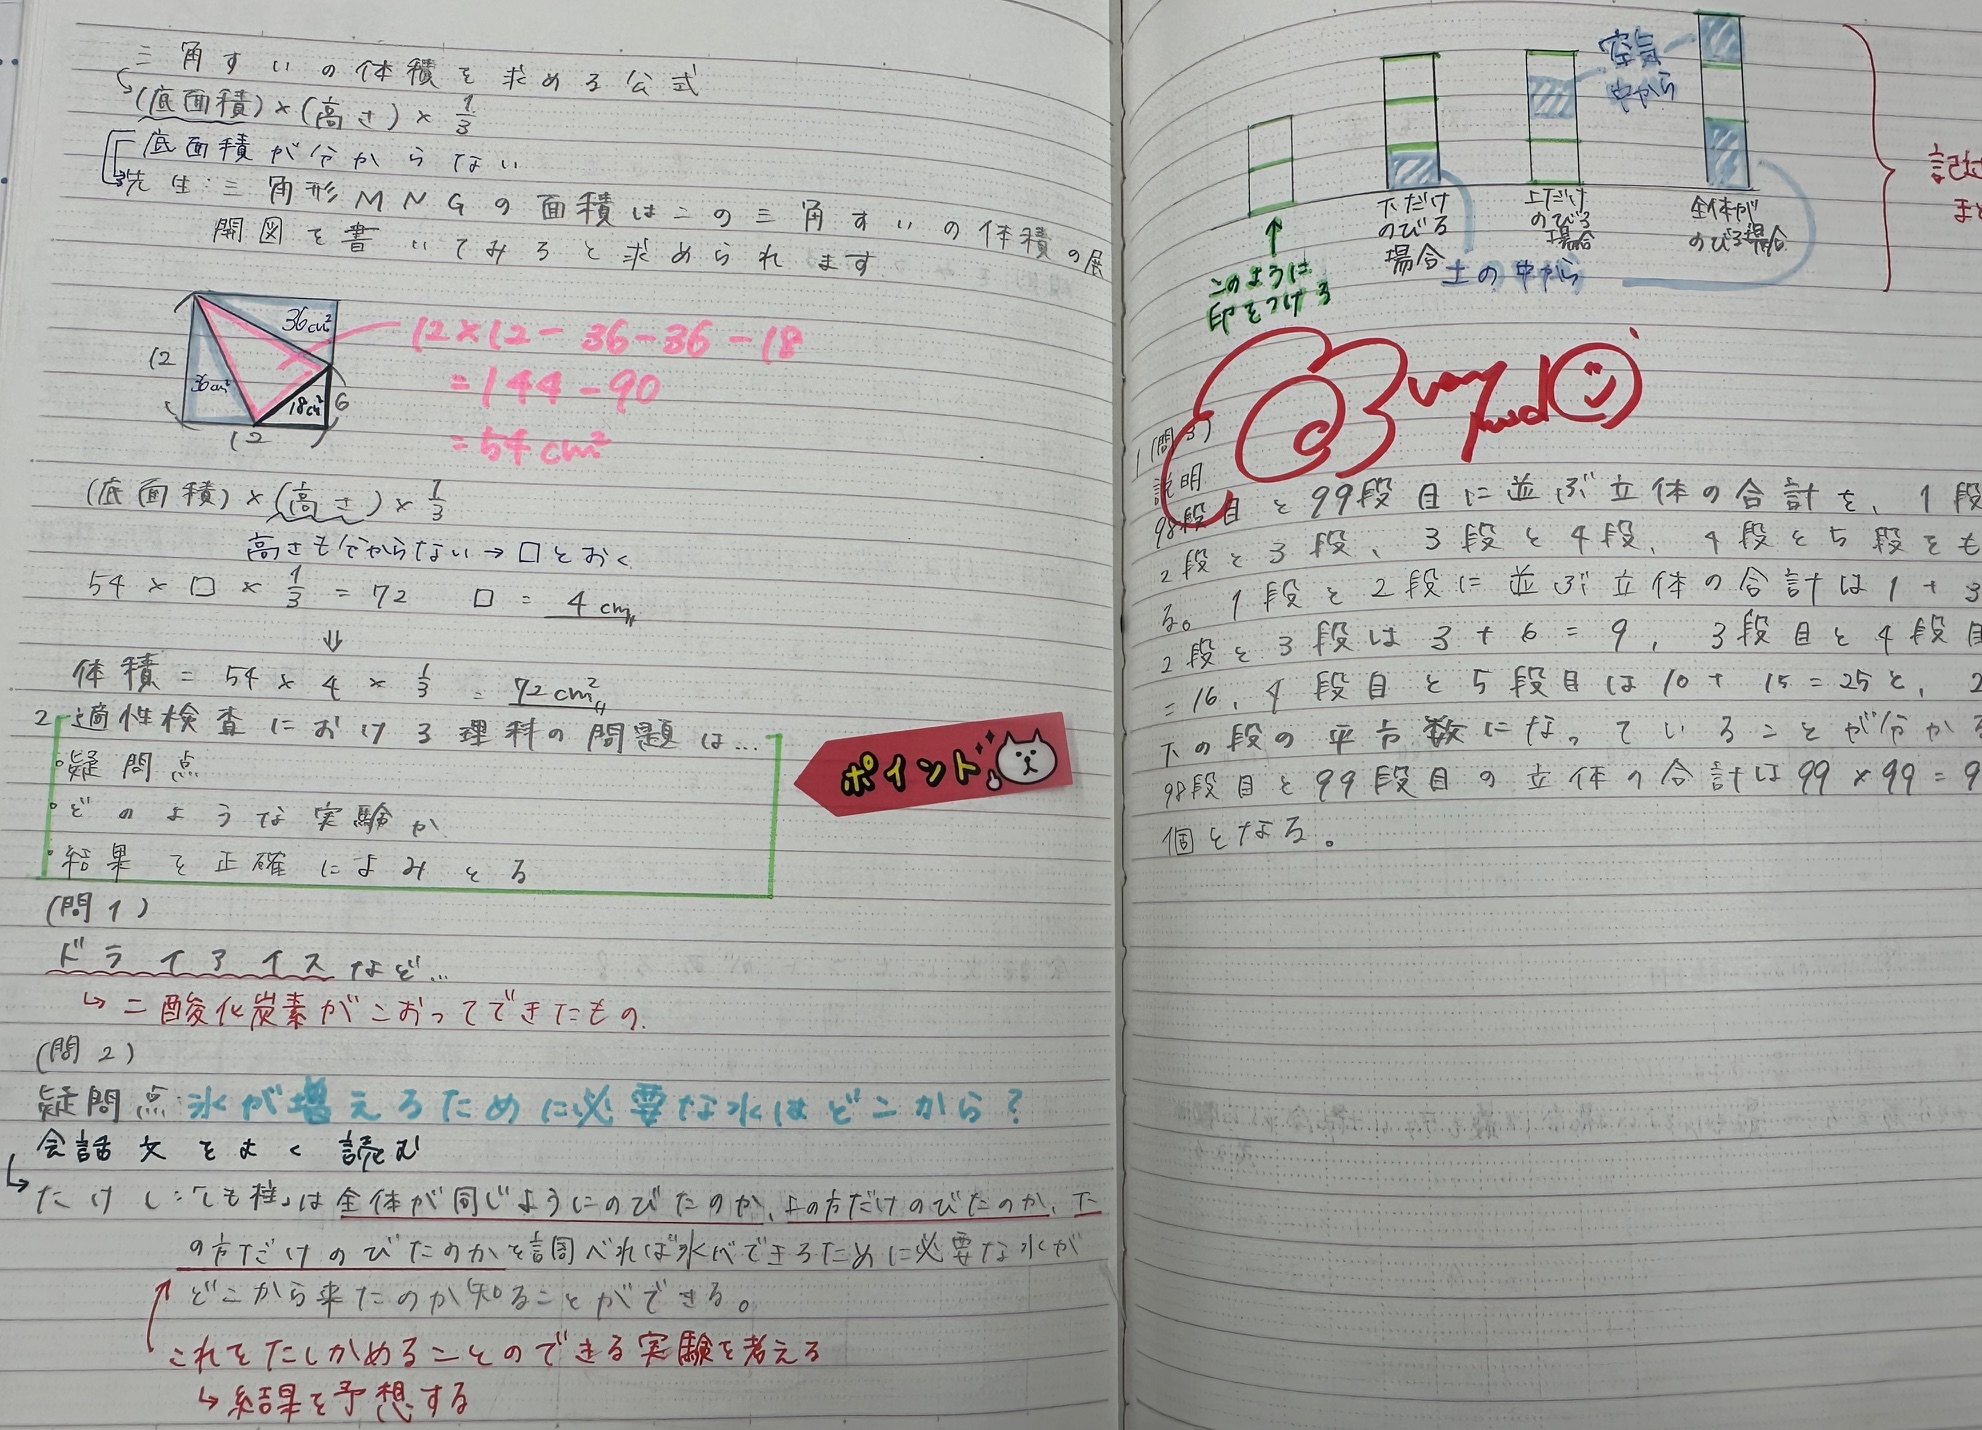 三角すいの体積を求める公式
(底面積)×(高さ)×1/3
底面積が分からない
先生:三角形MNGの面積はこの三角すいの体積の展
開図を書いてみると求められます
36cm²
12
36cm²
18cm²
6
12
12×12-36-36-18
=144-90
=54cm²
(底面積)×(高さ)×1/3
高さも分からない→□とおく
54×□×1/3=72 □=4cm
⇓
体積=54×4×1/3=72cm²
2 適性検査における理科の問題は…
・疑問点
・どのような実験か
・結果を正確によみとる
ポイント
(問1)
ドライアイスなど…
↳二酸化炭素がこおってできたもの.
(問2)
疑問点:氷が増えるために必要な水はどこから?
会話文をよく読む
たけし:「しも柱」は全体が同じようにのびたのか、上の方だけのびたのか、下
の方だけのびたのかを調べれば氷ができるために必要な水が
どこから来たのか知ることができる。
これをたしかめることのできる実験を考える
↳結果を予想する
空気
中から
このように
印をつける
下だけ
のびる
場合
上だけ
のびる
場合
全体が
のびる場合
土の中から
very good
1(問3)
説明
98段目と99段目に並ぶ立体の合計を、1段
2段と3段、3段と4段、4段と5段をも
る。1段と2段に並ぶ立体の合計は1+3
2段と3段は3+6=9、3段目と4段目
=16、4段目と5段目は10+15=25と、2
下の段の平方数になっていることが分かる
98段目と99段目の立体の合計は99×99=9
個となる。